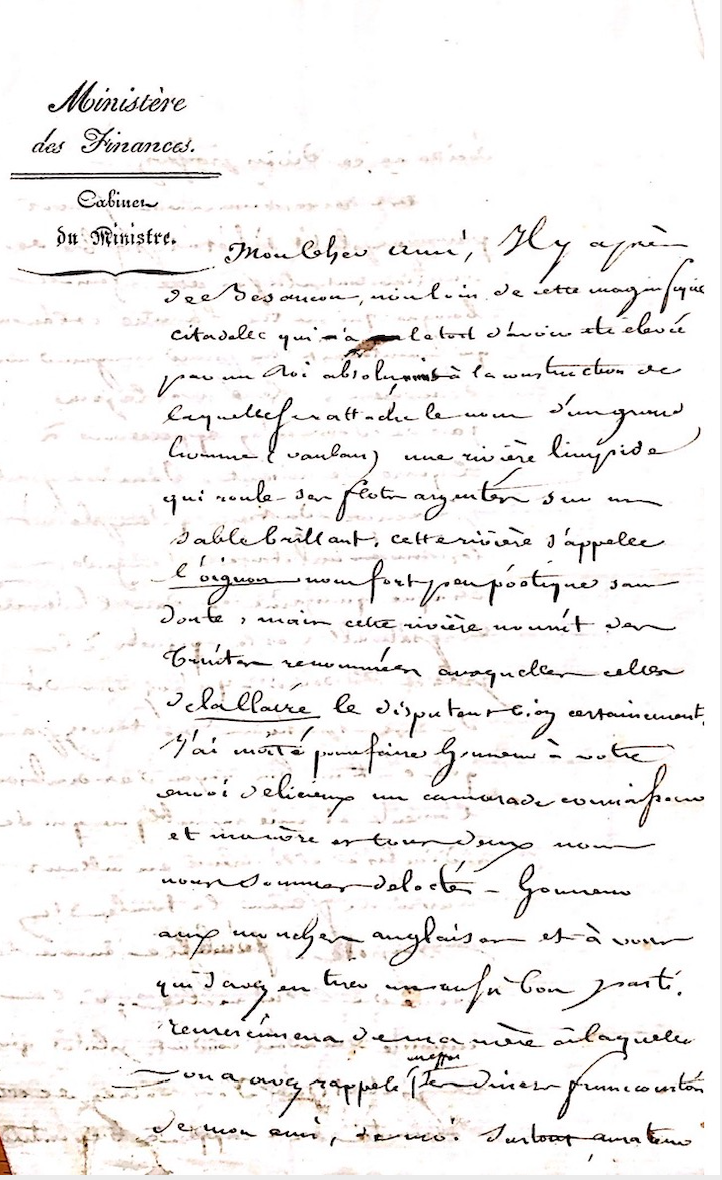 Ministère
des Finances.
Cabinet
du Ministre.
Mon Cher ami, Il y a près
de Besancon, non loin de cette magnifique
citadelle qui n'a le tort d'avoir été élevée
par un Roi absolu, mais à la construction de
laquelle se rattache le nom d'un grand
homme (vauban) une rivière limpide
qui roule ses flots argentés sur un
sable brillant, cette rivière s'appelle
l'oignon nom fort peu poétique sans
doute, mais cette rivière nourrit des
truites renommées auxquelles celles
de la llaire le disputent bien certainement.
J'ai invité pour faire honneur à votre
envoi délicieux un camarade connaisseur
et ma mère et tous deux nous
nous sommes delectés - honneur
aux mouches anglaises et à vous
qui savez en tirer un aussi bon parti.
remerciemens de ma mère à laquelle
vous avez rappelé les diners francomtois
de mon ami, de moi surtout amateur